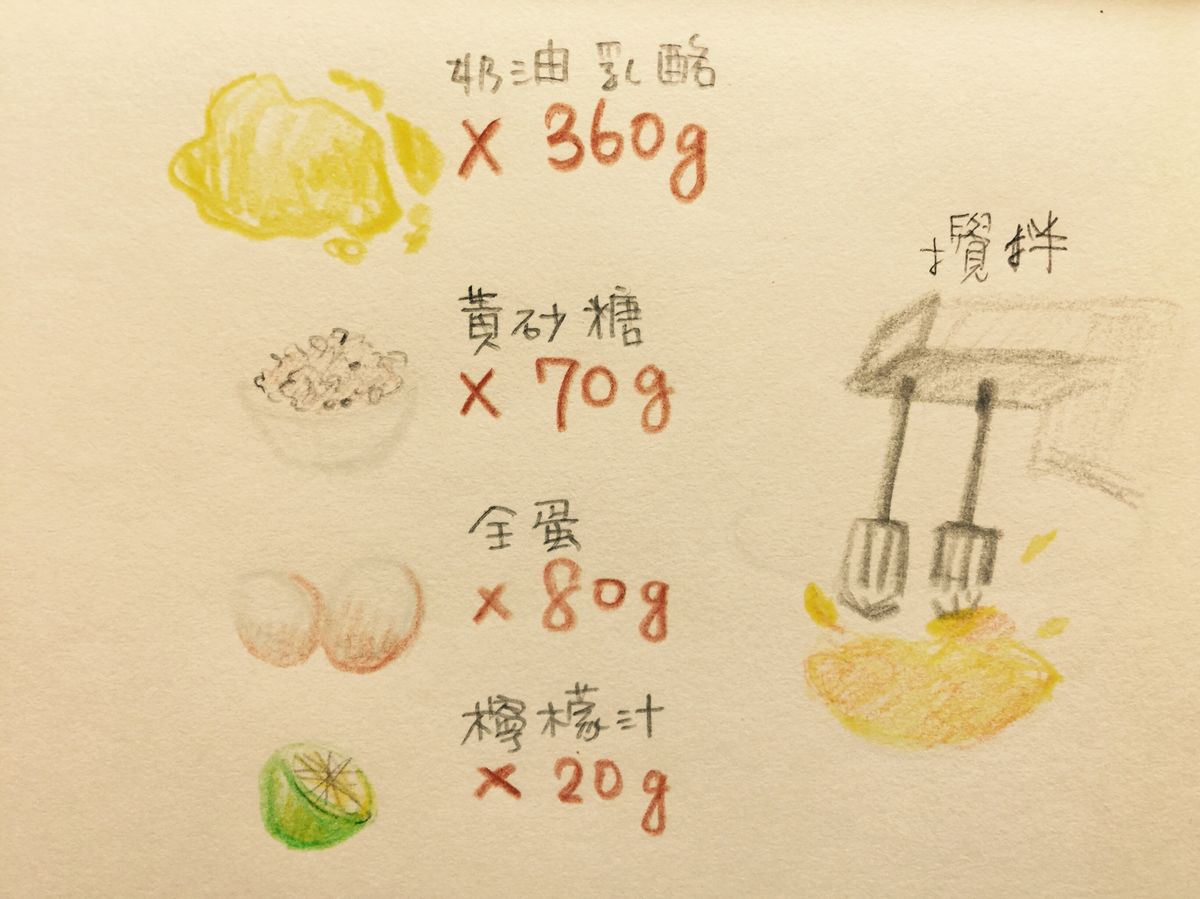 奶油乳酪
x 360g
黃砂糖
x 70g
全蛋
x 80g
檸檬汁
x 20g
攪拌